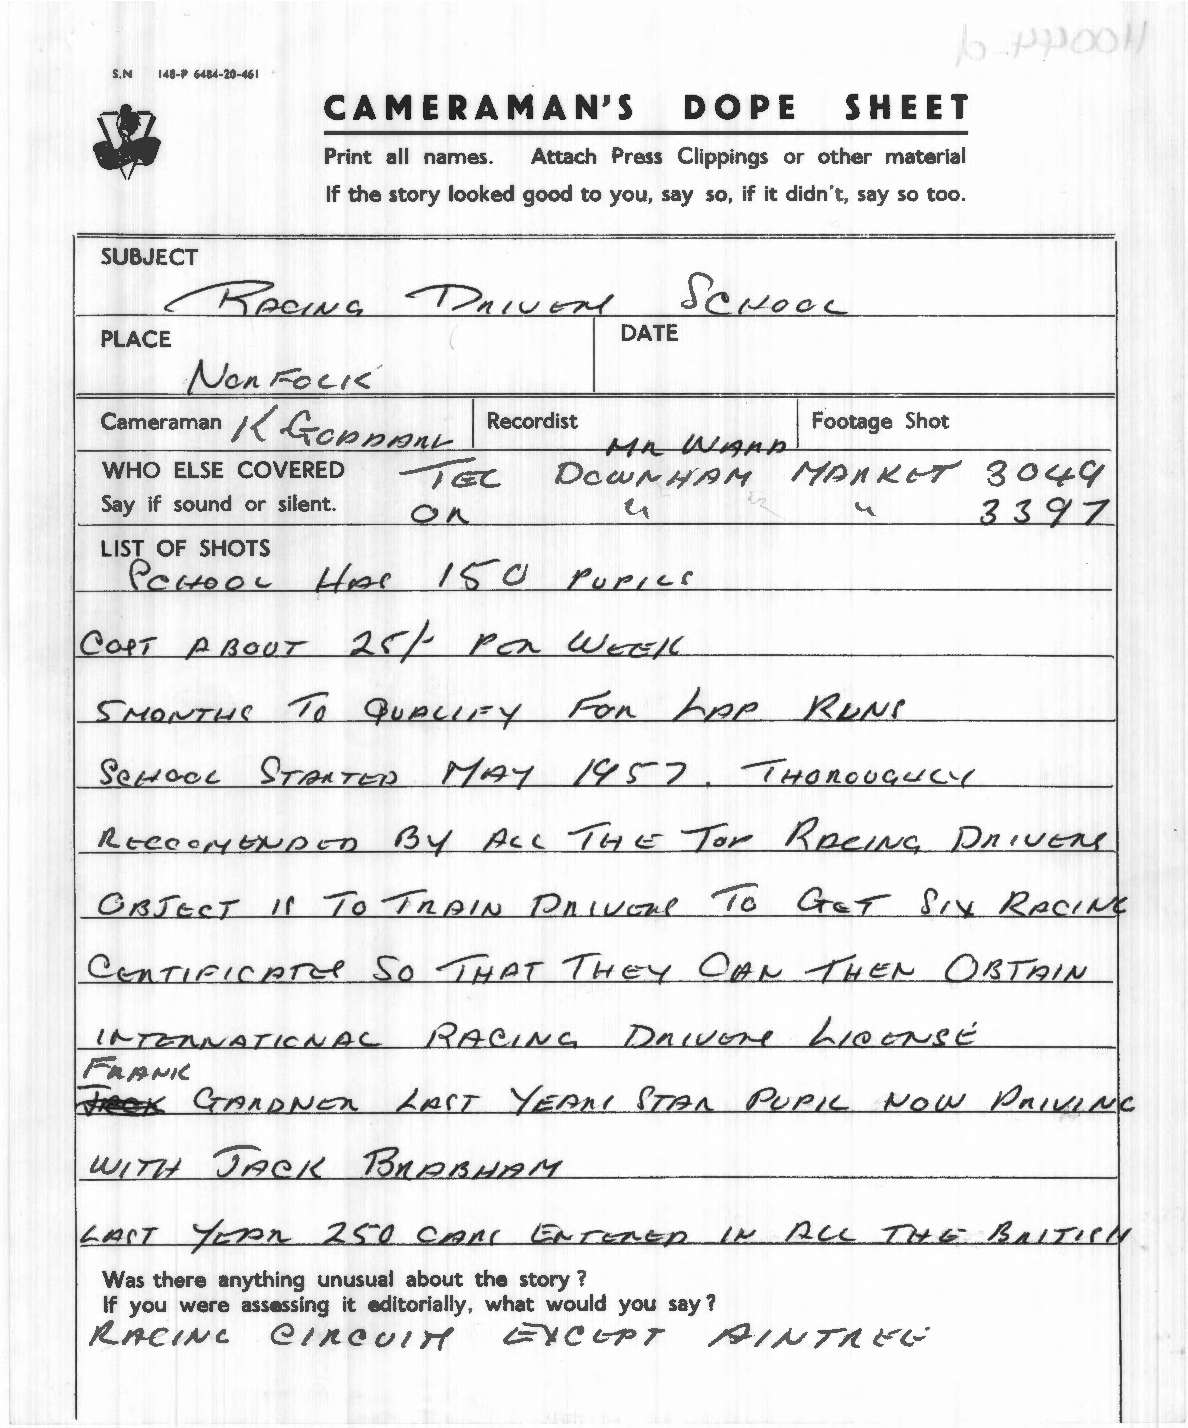 S.N 148-P 6484-20-461
CAMERAMAN'S DOPE SHEET
Print all names. Attach Press Clippings or other material
If the story looked good to you, say so, if it didn't, say so too.
SUBJECT
RACING DRIVERS SCHOOL
PLACE
DATE
NORFOLK
Cameraman K GODDARD Recordist MR WARD Footage Shot
WHO ELSE COVERED TEL DOWNHAM MARKET 3049
Say if sound or silent. OR " " 3397
LIST OF SHOTS
SCHOOL HAS 150 PUPILS
COST ABOUT 25/- PER WEEK
5 MONTHS TO QUALIFY FOR LAP RUNS
SCHOOL STARTED MAY 1957. THOROUGHLY
RECCOMENDED BY ALL THE TOP RACING DRIVERS
OBJECT IS TO TRAIN DRIVERS TO GET SIX RACING
CERTIFICATES SO THAT THEY CAN THEN OBTAIN
INTERNATIONAL RACING DRIVERS LICENSE
FRANK
JACK GARDNER LAST YEARS STAR PUPIL NOW DRIVING
WITH JACK BRABHAM
LAST YEAR 250 CARS ENTERED IN ALL THE BRITISH
Was there anything unusual about the story?
If you were assessing it editorially, what would you say?
RACING CIRCUITS EXCEPT AINTREE